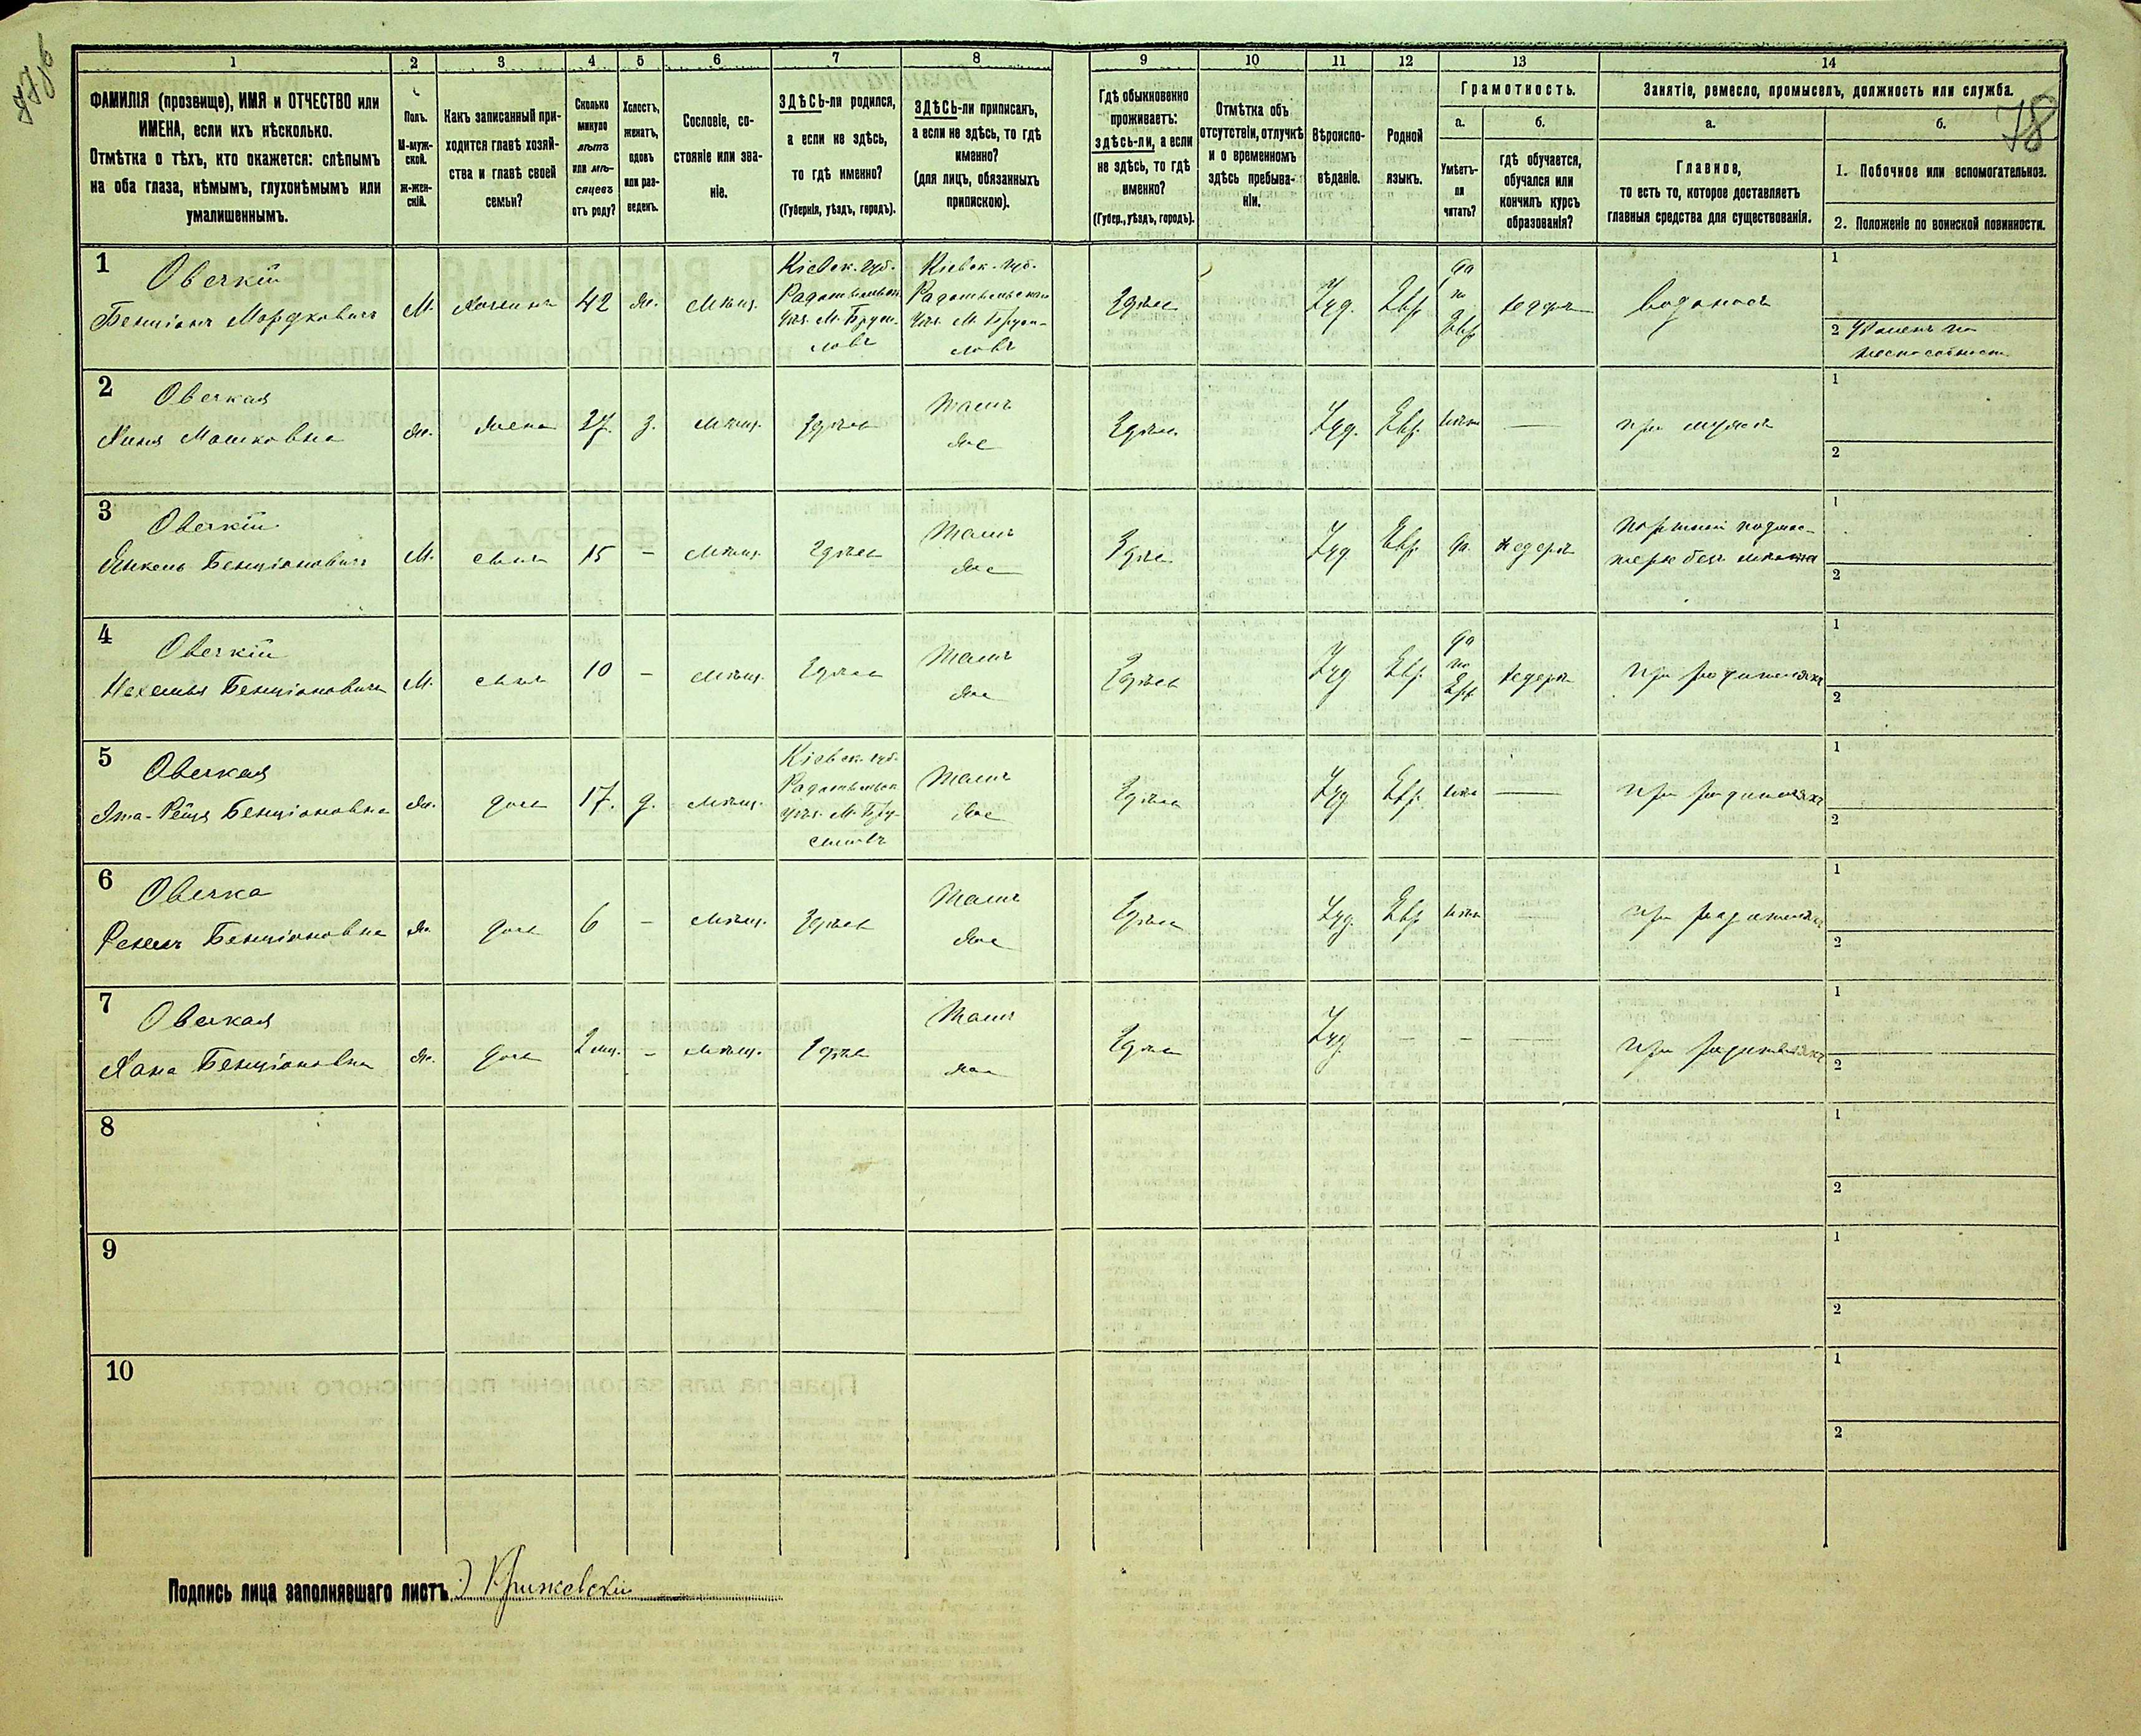 78
1 2 3 4 5 6 7 8 9 10 11 12 13 14
ФАМИЛІЯ (прозвище), ИМЯ и ОТЧЕСТВО или
ИМЕНА, если ихъ нѣсколько.
Отмѣтка о тѣхъ, кто окажется: слѣпымъ
на оба глаза, нѣмымъ, глухонѣмымъ или
умалишеннымъ.
Полъ.
М-муж-
ской.
ж-жен-
скій.
Какъ записанный при-
ходится главѣ хозяй-
ства и главѣ своей
семьи?
Сколько
минуло
лѣтъ
или мѣ-
сяцевъ
отъ роду?
Холостъ,
женатъ,
вдовъ
или раз-
веденъ.
Сословіе, со-
стояніе или зва-
ніе.
ЗДѢСЬ-ли родился,
а если не здѣсь,
то гдѣ именно?
(Губернія, уѣздъ, городъ).
ЗДѢСЬ-ли приписанъ,
а если не здѣсь, то гдѣ
именно?
(для лицъ, обязанныхъ
припискою).
Гдѣ обыкновенно
проживаетъ:
здѣсь-ли, а если
не здѣсь, то гдѣ
именно?
(Губер., уѣздъ, городъ).
Отмѣтка объ
отсутствіи, отлучкѣ
и о временномъ
здѣсь пребыва-
ніи.
Вѣроиспо-
вѣданіе.
Родной
языкъ.
Грамотность.
а.
Умѣетъ-
ли
читать?
б.
гдѣ обучается,
обучался или
кончилъ курсъ
образованія?
Занятіе, ремесло, промыселъ, должность или служба.
а.
Главное,
то есть то, которое доставляетъ
главныя средства для существованія.
б.
1. Побочное или вспомогательное.
2. Положеніе по воинской повинности.
1
Овечкій
Бенціонъ Мордковичъ
М. Хозяинъ 42 ж. Мѣщ.
Кіевск. губ.
Радомысльск.
уѣз. М. Бруси-
ловъ
Кіевск. губ.
Радомысльскаго
уѣз. М. Бруси-
ловъ
Здѣсь Іуд. Евр.
да
по
Евр
хедеръ водоносъ
1
2 Уволенъ по
неспособности
2
Овечкая
Хиня Мошковна
ж. жена 27. з. Мѣщ. Здѣсь
Тамъ
же
Здѣсь Іуд. Евр. нѣтъ — при мужѣ
1
2
3
Овечкій
Янкель Бенціоновичъ
М. сынъ 15 - Мѣщ. Здѣсь
Тамъ
же
Здѣсь Іуд Евр. да хедеръ
Портной подмас-
1
2
4
Овечкій
Нехемья Бенціоновичъ
М. сынъ 10 - Мѣщ. Здѣсь
Тамъ
же
Здѣсь Іуд Евр.
да
по
Евр
хедеръ при родителяхъ
1
2
5
Овечкая
Бенціоновна
ж. дочь 17. д. Мѣщ.
Кіевск. губ.
Радомысльск
уѣз. М. Бру-
силовъ
Тамъ
же
Здѣсь Іуд Евр. нѣтъ — при родителяхъ
1
2
6
Овечка
Бенціоновна
ж. дочь 6 - Мѣщ. Здѣсь
Тамъ
же
Здѣсь Іуд. Евр нѣтъ — при родителяхъ
1
2
7
Овечкая
Хана Бенціоновна
ж. дочь 2 мѣс. - Мѣщ. Здѣсь
Тамъ
же
Здѣсь Іуд. — - — при родителяхъ
1
2
8
1
2
9
1
2
10
1
2
Подпись лица заполнявшаго листъ